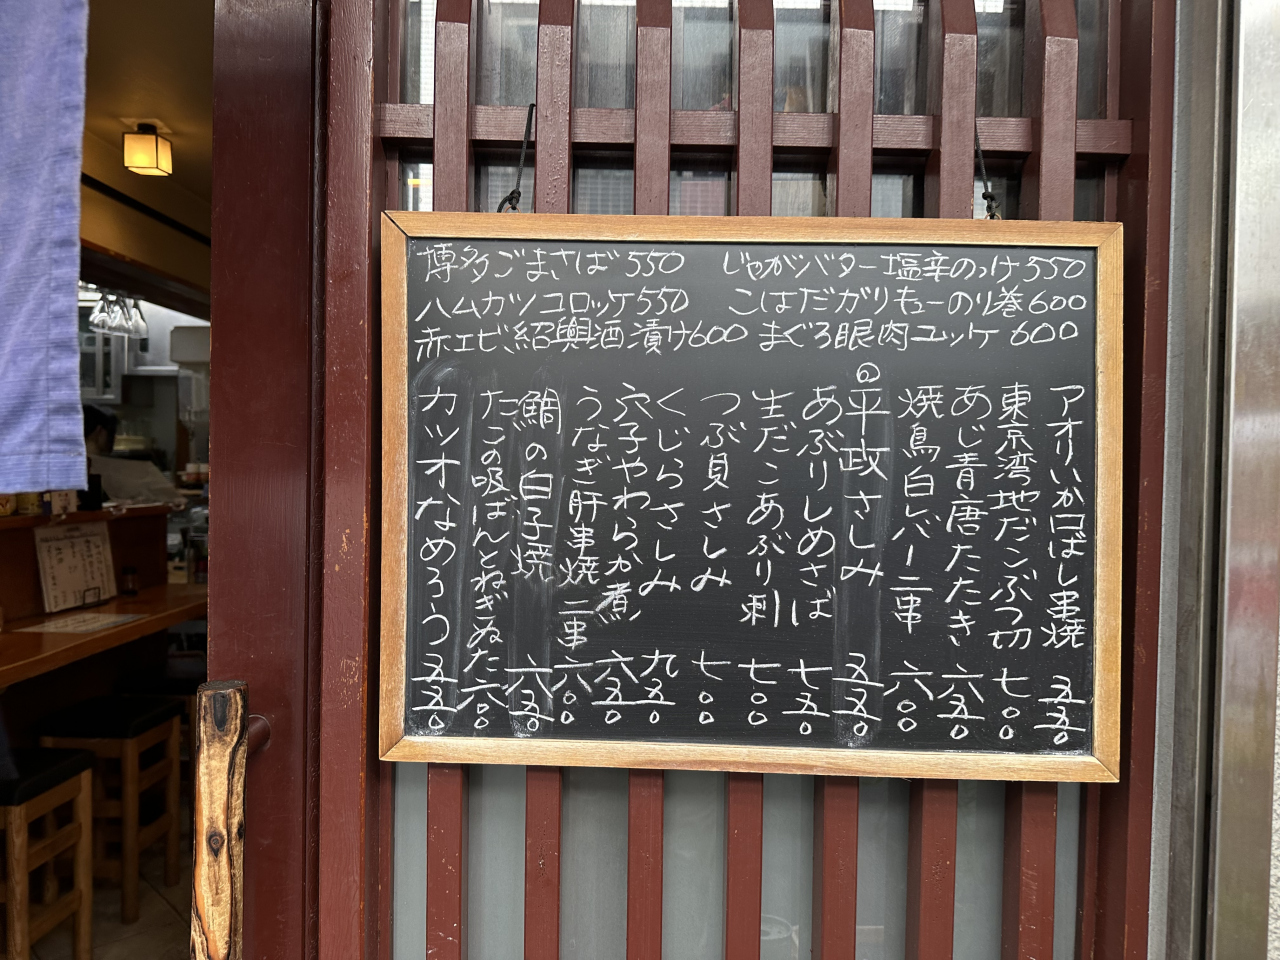 博多ごまさば 550
じゃがバター塩辛のっけ 550
ハムカツコロッケ 550
こはだガリキューのり巻 600
赤エビ紹興酒漬け 600
まぐろ眼肉ユッケ 600
アオリいか口ばし串焼 五五〇
東京湾地だこぶつ切 七〇〇
あじ青唐たたき 六五〇
焼鳥白レバー二串 六〇〇
の平政さしみ 五五〇
あぶりしめさば 七五〇
生だこあぶり刺 七〇〇
つぶ貝さしみ 七〇〇
くじらさしみ 九五〇
穴子やわらか煮 六五〇
うなぎ肝串焼二串 六〇〇
鯛の白子焼 六五〇
たこの吸ばんとねぎぬた 六〇〇
カツオなめろう 五五〇